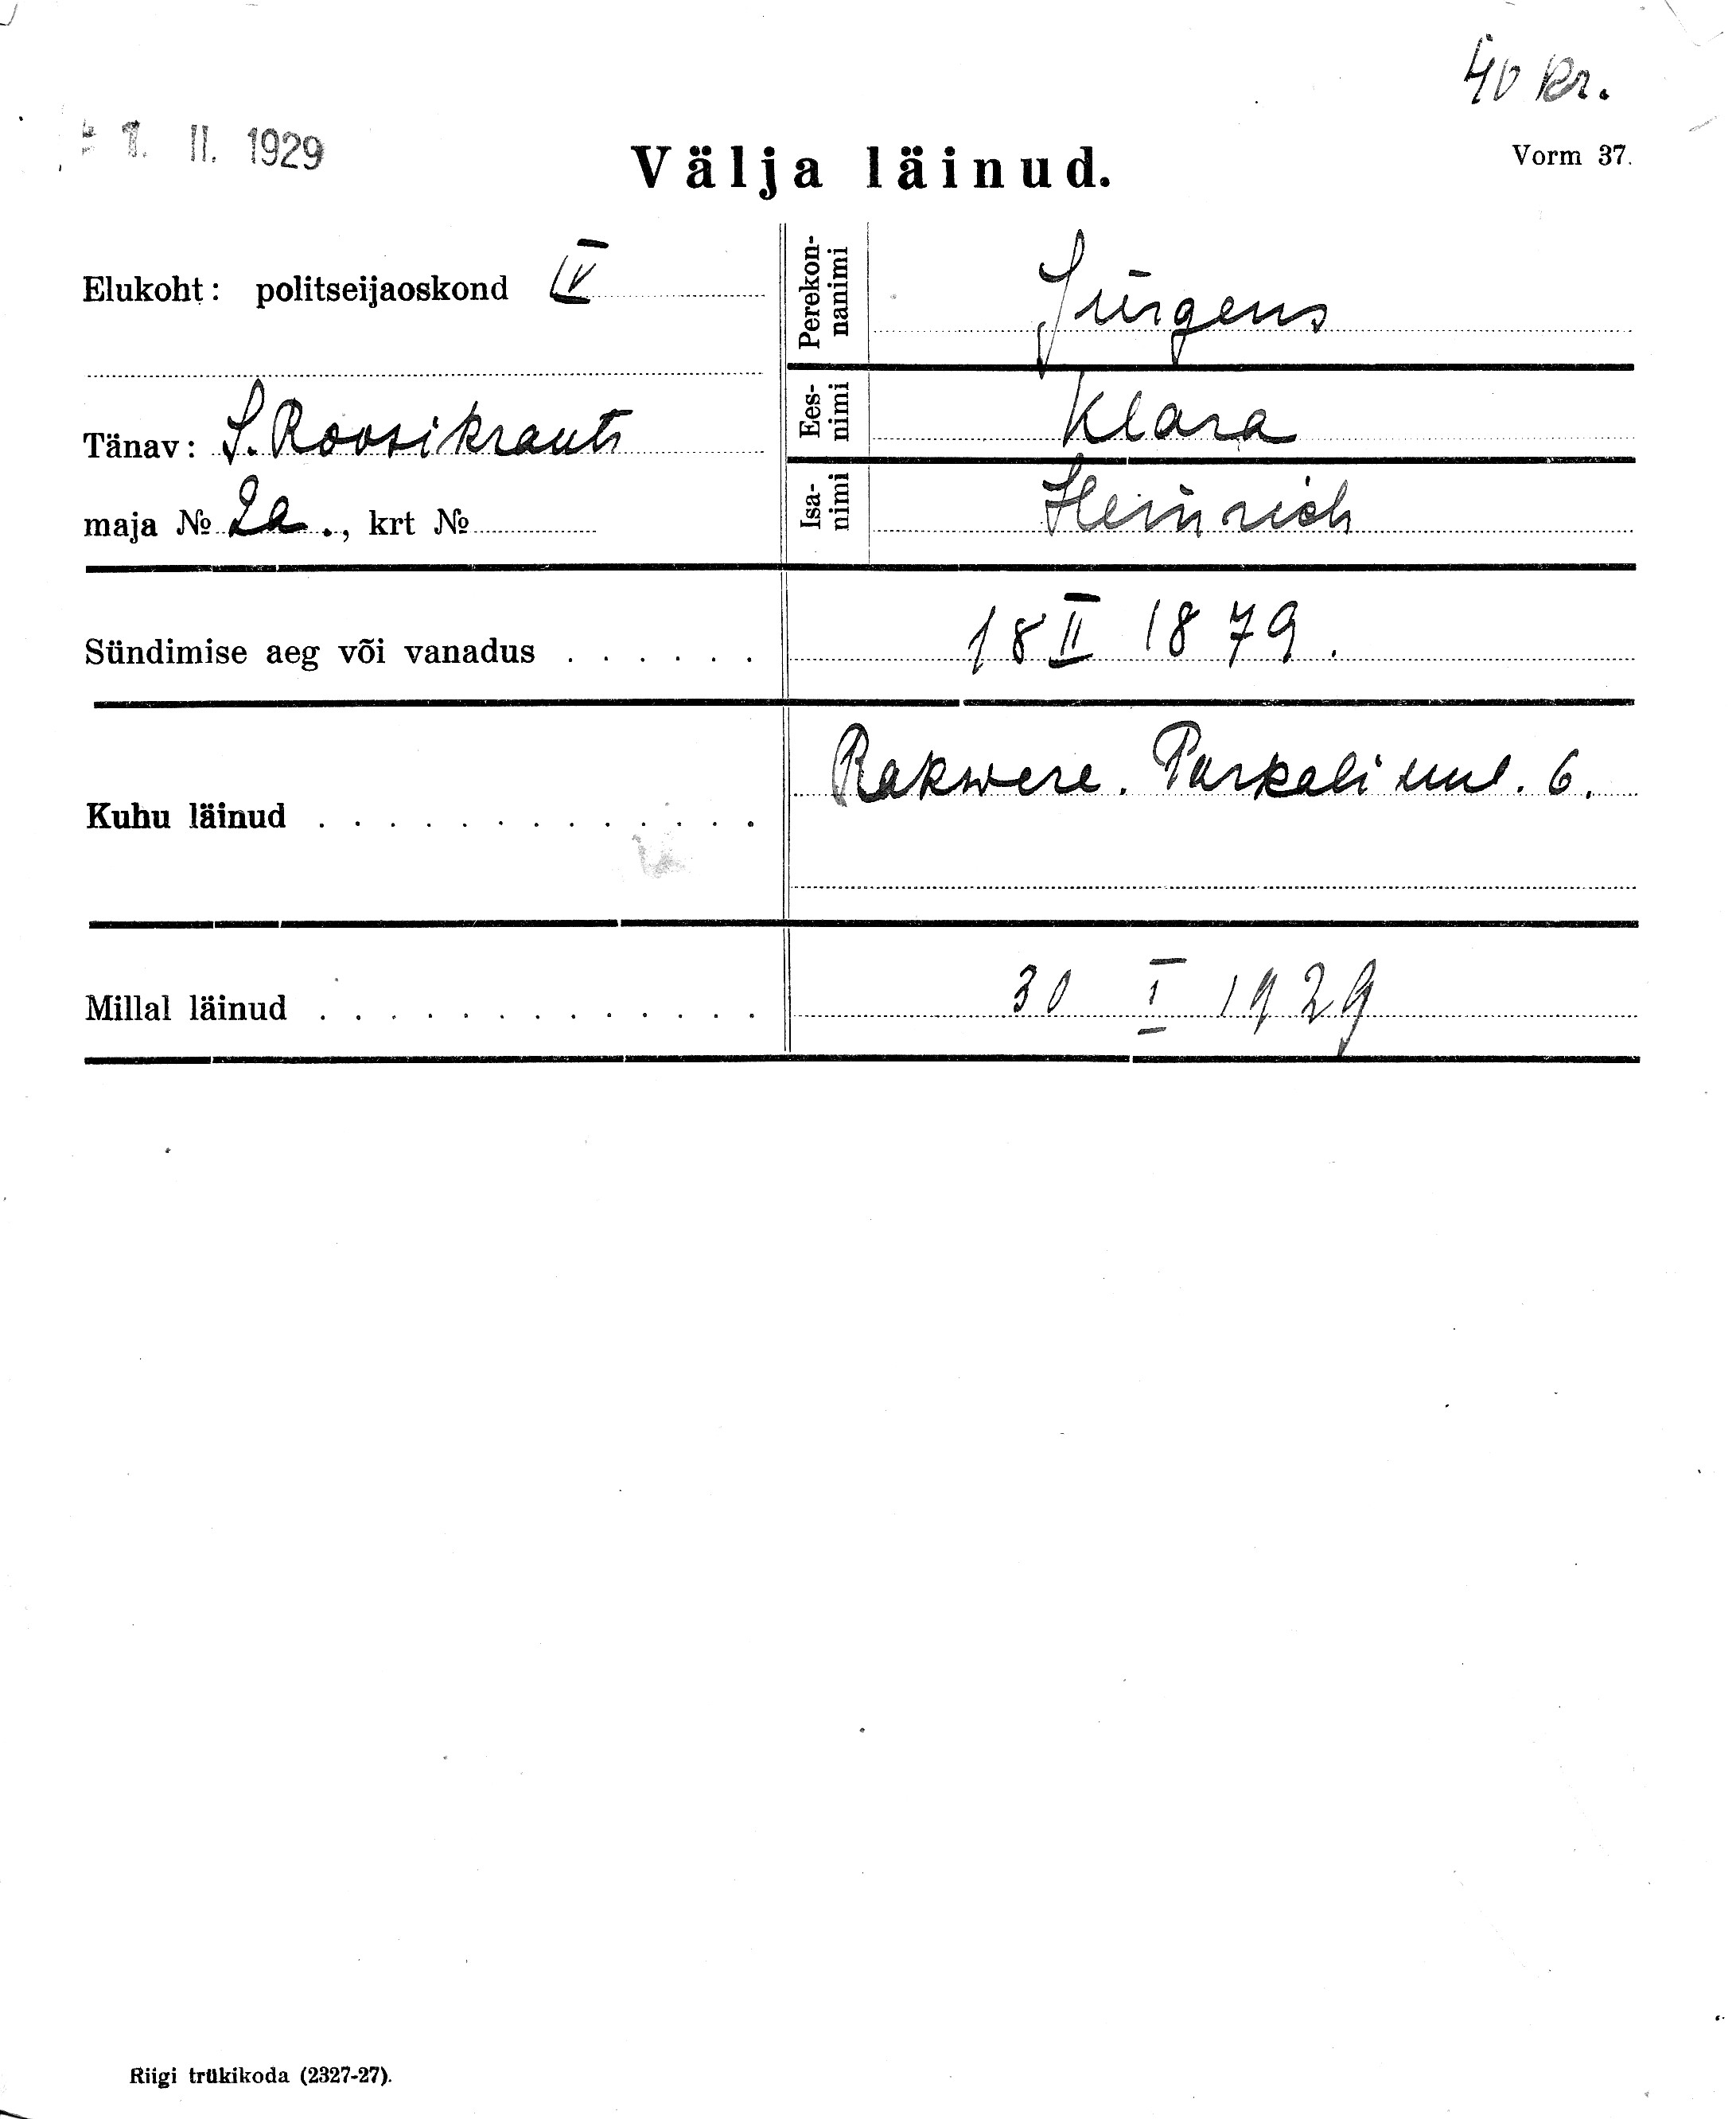 40 kr.
1. II. 1929
Välja läinud.
Vorm 37.
Elukoht: politseijaoskond IV
Tänav: S. Roosikrants
maja № 2a., krt №
Perekon-
nanimi
Jürgens
Ees-
nimi
Klara
Isa-
nimi
Heinrich
Sündimise aeg või vanadus . . . . . . 18 II 1879.
Kuhu läinud . . . . . . . . . . . . . Rakwere. Parkali uul. 6.
Millal läinud . . . . . . . . . . . . . 30 I 1929
Riigi trükikoda (2327-27).